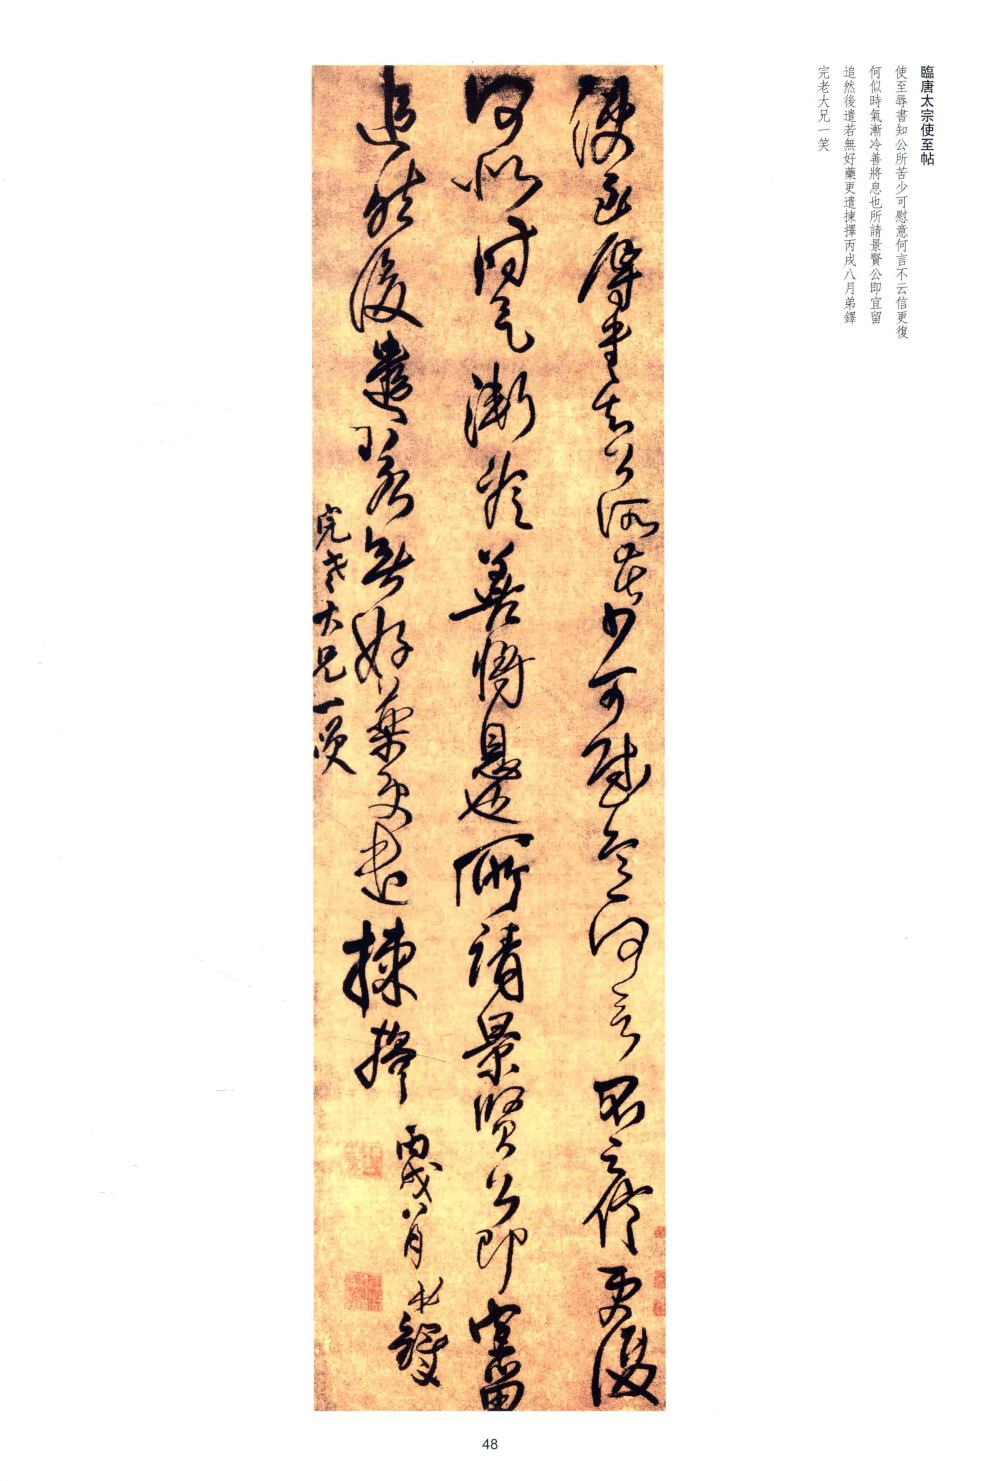 臨唐太宗使至帖
使至辱書知公所苦少可慰意何言不云信更復
何似時氣漸冷善將息也所請景賢公即宜留
追然後遣若無好藥更遣揀擇丙戌八月弟鐸
完老大兄一笑
使至辱書知公所苦少可慰意何言不云信更復
何似時氣漸冷善將息也所請景賢公即宜留
追然後遣若無好藥更遣揀擇丙戌八月弟鐸
完老大兄一笑
48